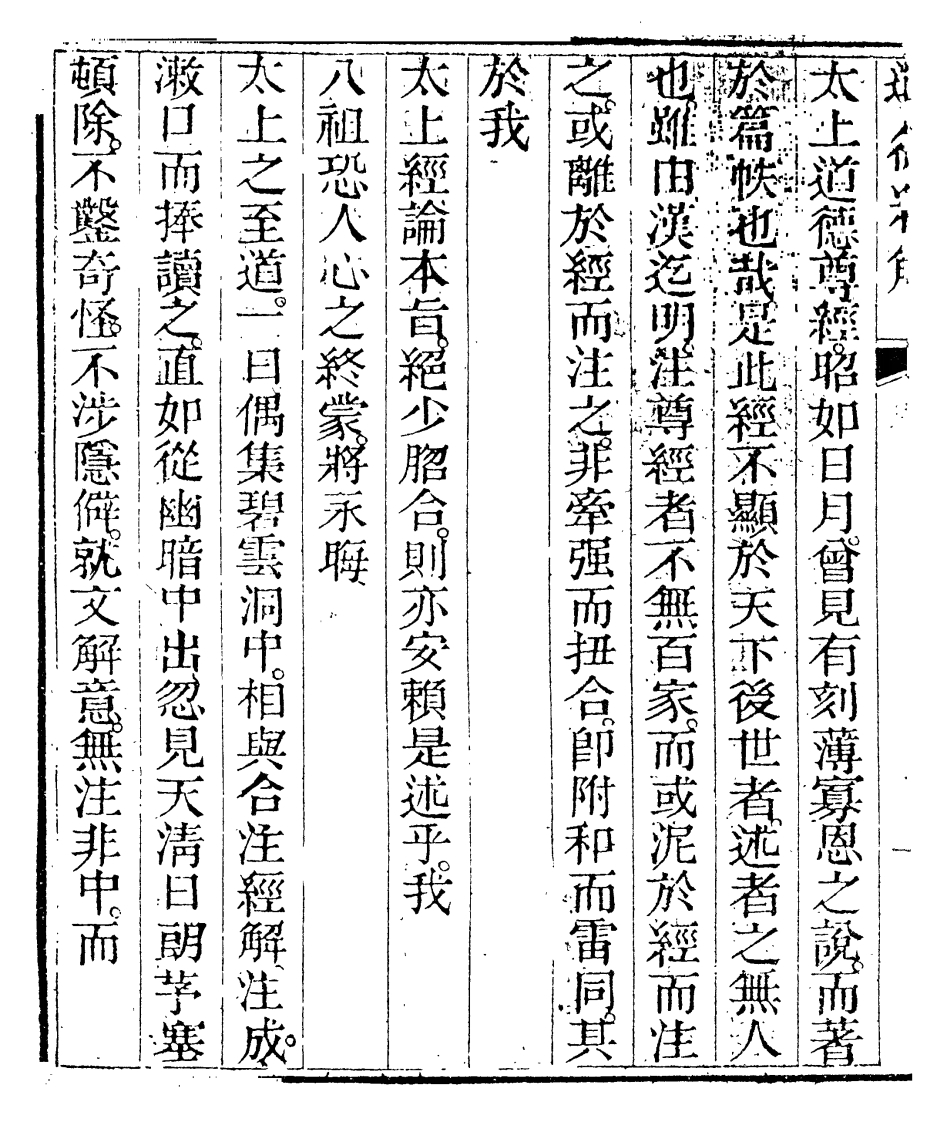 太上道德尊經。昭如日月。曾見有刻薄寡恩之說。而著
於篇帙也哉。是此經不顯於天下後世者。述者之無人
也。雖由漢迄明。注尊經者不無百家。而或泥於經而注
之。或離於經而注之。非牽强而扭合。卽附和而雷同。其
於我
太上經論本旨。絕少脗合。則亦安賴是述乎。我
八祖恐人心之終蒙。將永晦
太上之至道。一日偶集碧雲洞中。相與合注經解。注成。
漱口而捧讀之。直如從幽暗中出。忽見天淸日朗。茅塞
頓除。不鑿奇怪。不涉隱僻。就文解意。無注非中。而